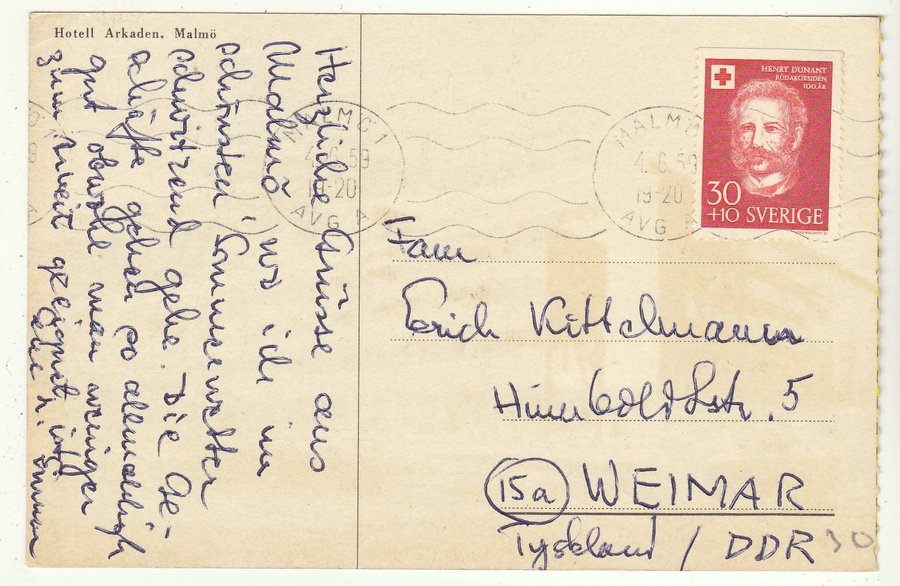 Hotell Arkaden, Malmö
Herzliche Grüsse aus
Malmö wo ich im
schönsten Sommerwetter
schwitzend gehe. Die Ge-
schäfte gehen so allmählich
gut obwohl man weniger
zum Arbeit geeignet ist
MALMÖ 1
4.6.59
19-20
AVG
MALMÖ
4.6.59
19-20
AVG
HENRY DUNANT
RÖDAKORSIDEN
100 ÅR
30
+10 SVERIGE
Fam
Erich Kittelmann
Humboldtstr. 5
15a WEIMAR
Tyskland / DDR
30